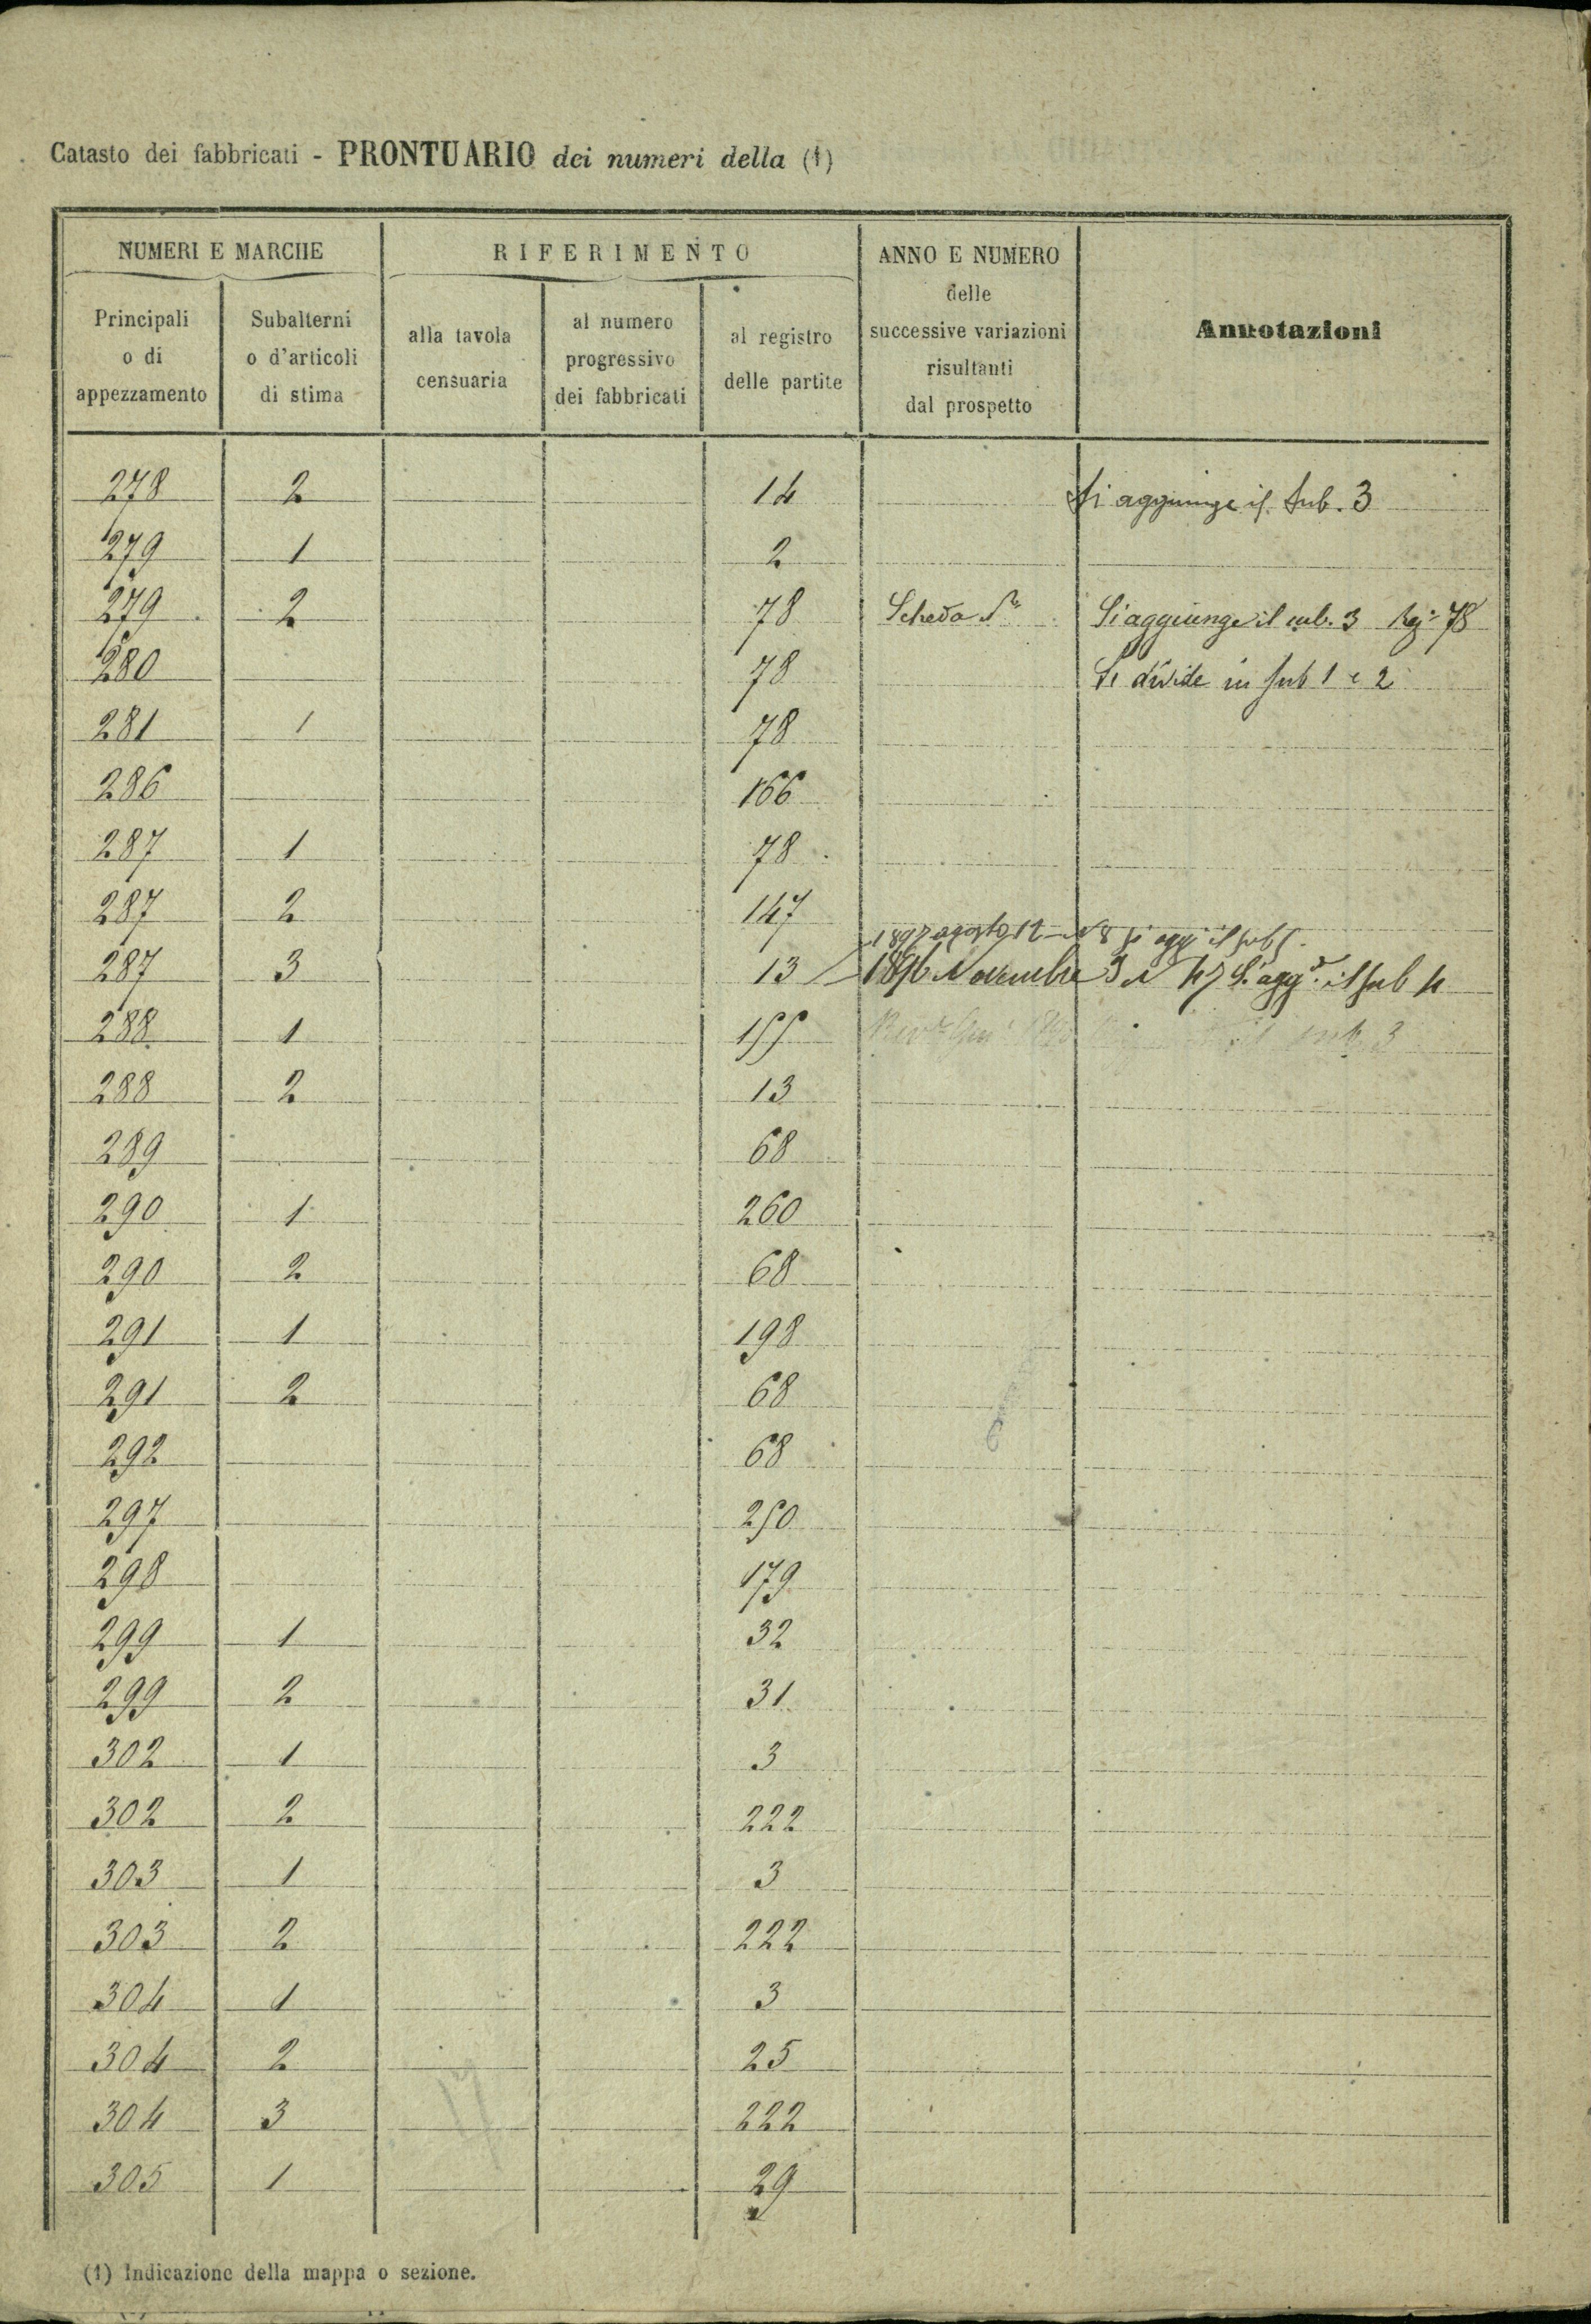 Catasto dei fabbricati - PRONTUARIO dei numeri della (1)
NUMERI E MARCHE
RIFERIMENTO
ANNO E NUMERO
delle
successive variazioni
risultanti
dal prospetto
Annotazioni
Principali
o di
appezzamento
Subalterni
o d'articoli
di stima
alla tavola
censuaria
al numero
progressivo
dei fabbricati
al registro
delle partite
278 2 14 Si aggiunge il Sub. 3
279 1 2
279 2 78 Scheda Si aggiunge il sub. 3 78
280 78 Si divide in Sub 1 e 2
281 1 78
286 166
287 1 78
287 2 147
1897 agosto 12 N 8 si agg il sub 5
287 3 13 1896 Novembre 3 N 47 Si agg. il sub 4
288 1 155 sub. 3
288 2 13
289 68
290 1 260
290 2 68
291 1 198
291 2 68
292 68
297 250
298 179
299 1 32
299 2 31
302 1 3
302 2 222
303 1 3
303 2 222
304 1 3
304 2 25
304 3 222
305 1 29
(1) Indicazione della mappa o sezione.